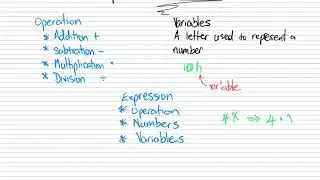 Operation
* Addition +
* Subtration -
* Multiplication *
* Division ÷
Variables
A letter used to represent a
number
10h
variable
Expression
* Operation
* Numbers
* Variables
4x ⇒ 4 •